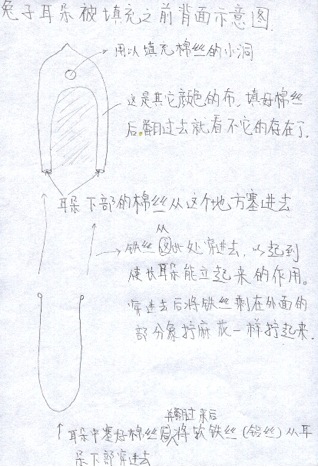 兔子耳朵被填充之前背面示意图
用以填充棉丝的小洞
这是其它颜色的布,填好棉丝
后翻过去就看不它的存在了.
耳朵下部的棉丝从这个地方塞进去
从
铁丝此处穿进去,以起到
使长耳朵能立起来的作用。
穿进去后将铁丝剩在外面的
部分象拧麻花一样拧起来.
翻过来后
耳朵中塞好棉丝将软铁丝(铅丝)从耳
朵下部穿进去